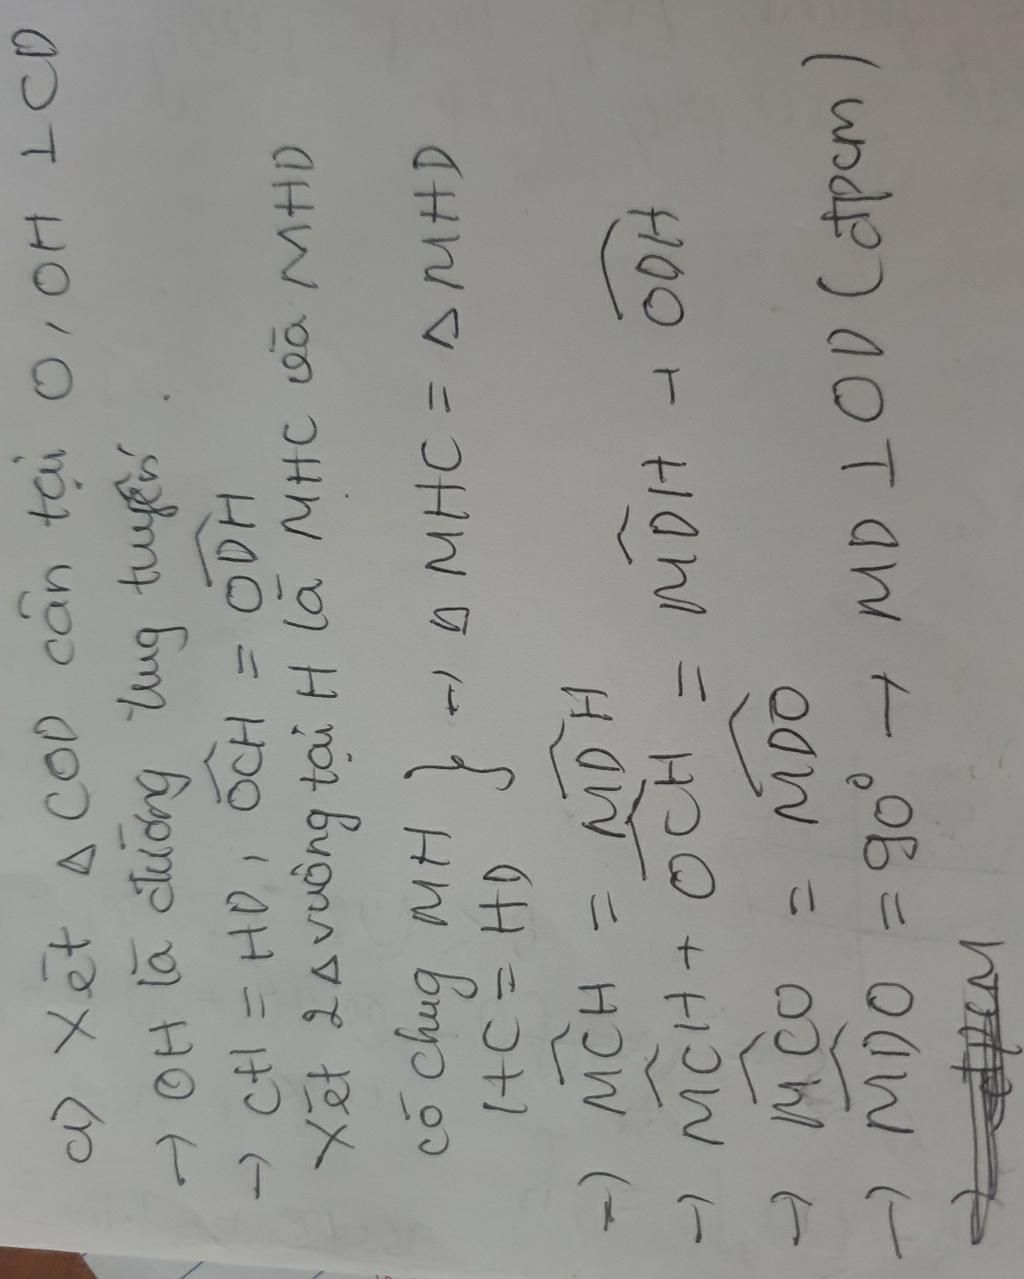 a) Xét Δ COD cân tại O, OH ⊥ CD
→ OH là đường trung tuyến.
→ CH = HD, \widehat{OCH} = \widehat{ODH}
Xét 2 Δ vuông tại H là MHC và MHD
có chug MH } → Δ MHC = Δ MHD
HC = HD
→ \widehat{MCH} = \widehat{MDH}
→ \widehat{MCH} + \widehat{OCH} = \widehat{MDH} + \widehat{ODH}
→ \widehat{MCO} = \widehat{MDO}
→ \widehat{MDO} = 90° → MD ⊥ OD (đpcm)